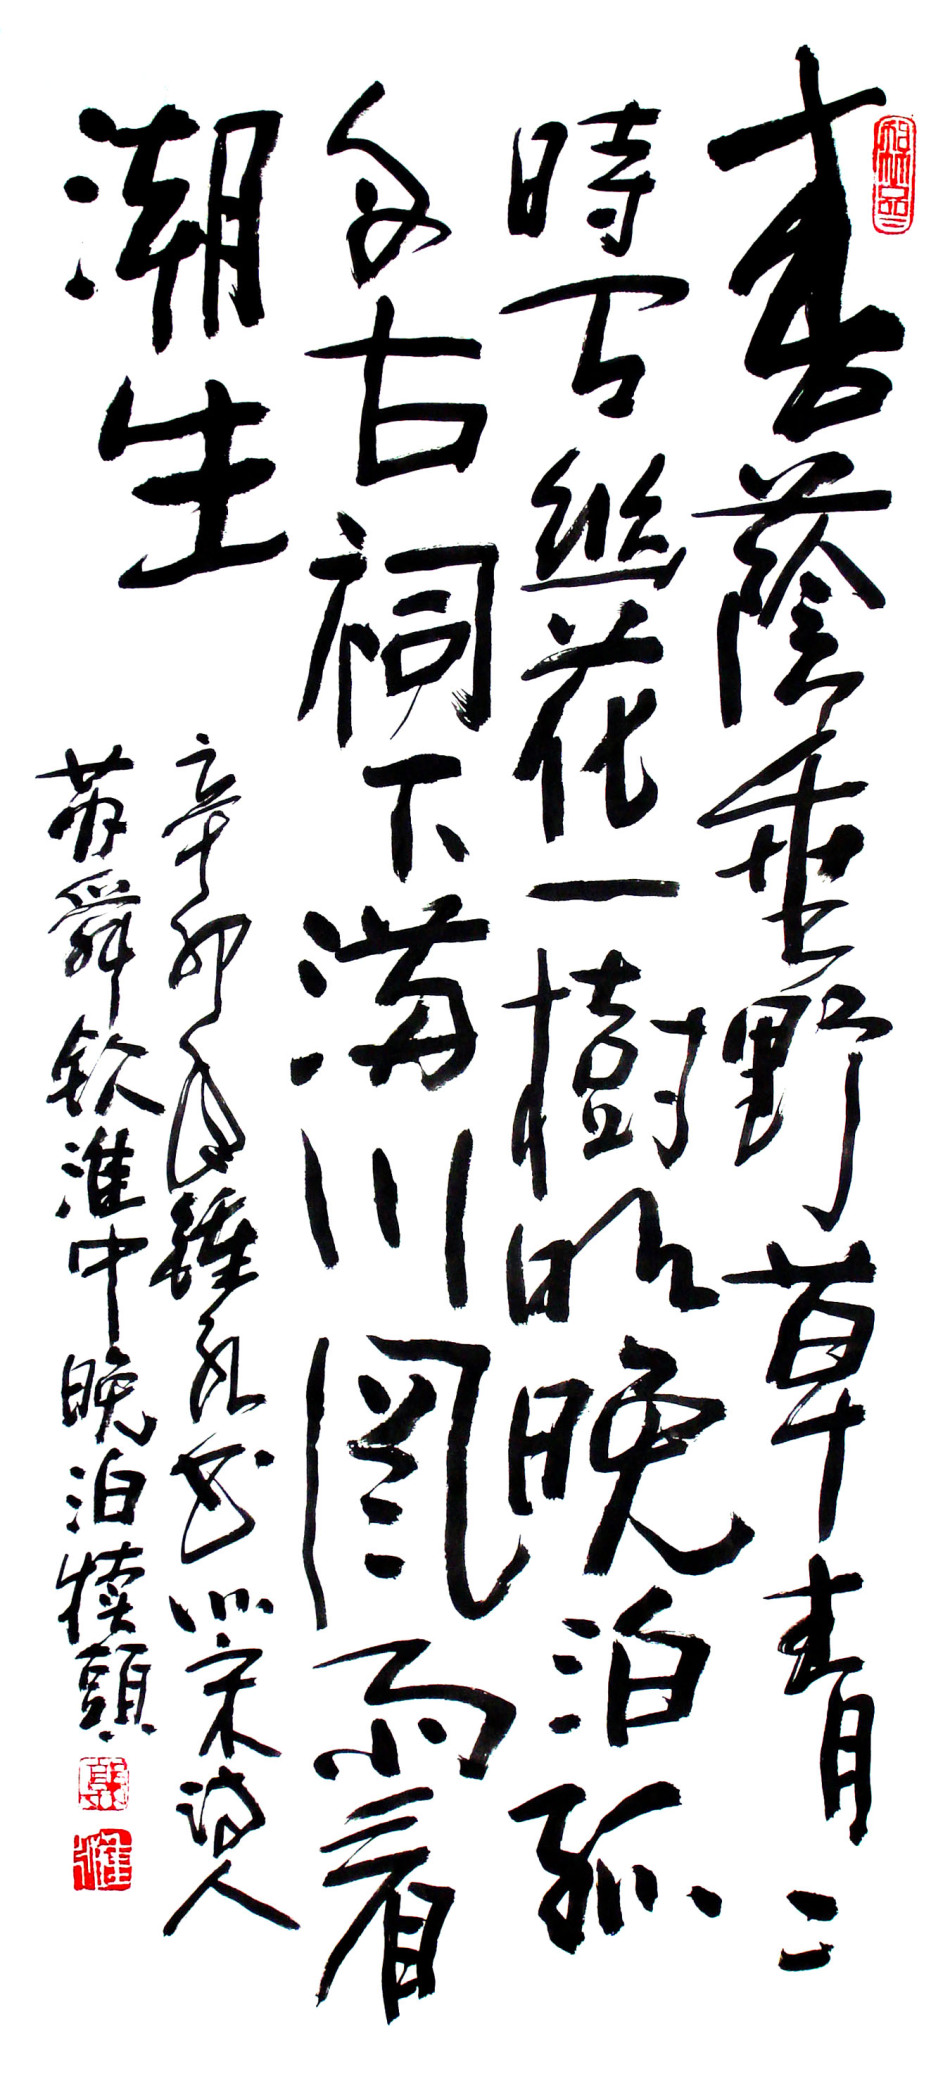 春蔭垂野草青〻
時有幽花一樹明晚泊孤
舟古祠下滿川風雨看
潮生
辛卯年書北宋詩人
苏舜欽淮中晚泊犢頭